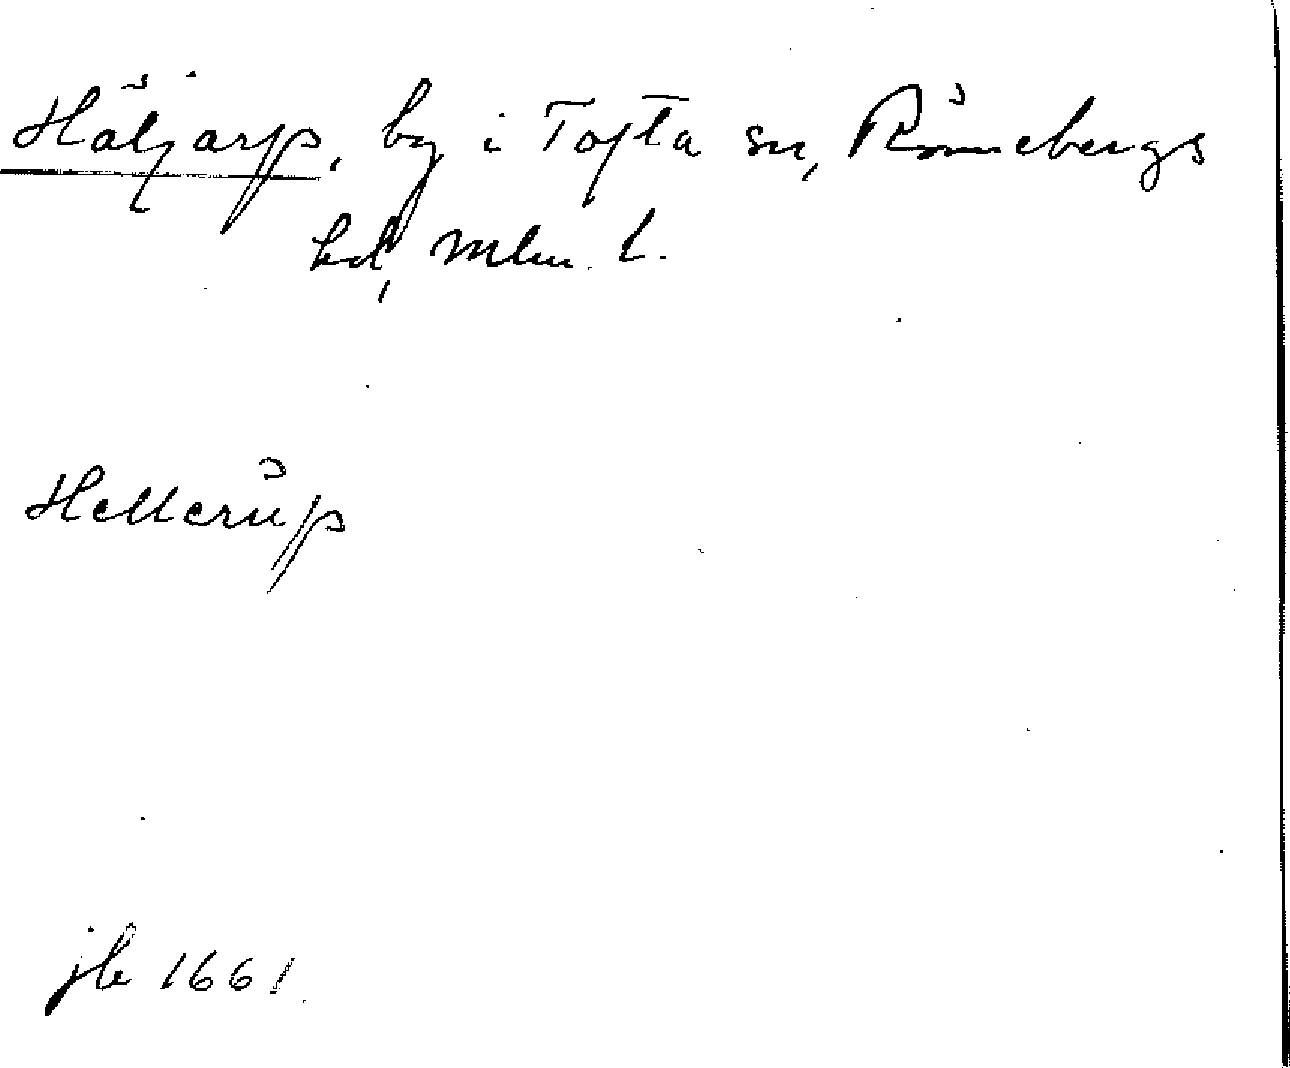 Häljarp, by i Tofta sn, Rönnebergs
hd, Mlm. l.
Hellerup
jb 1661.